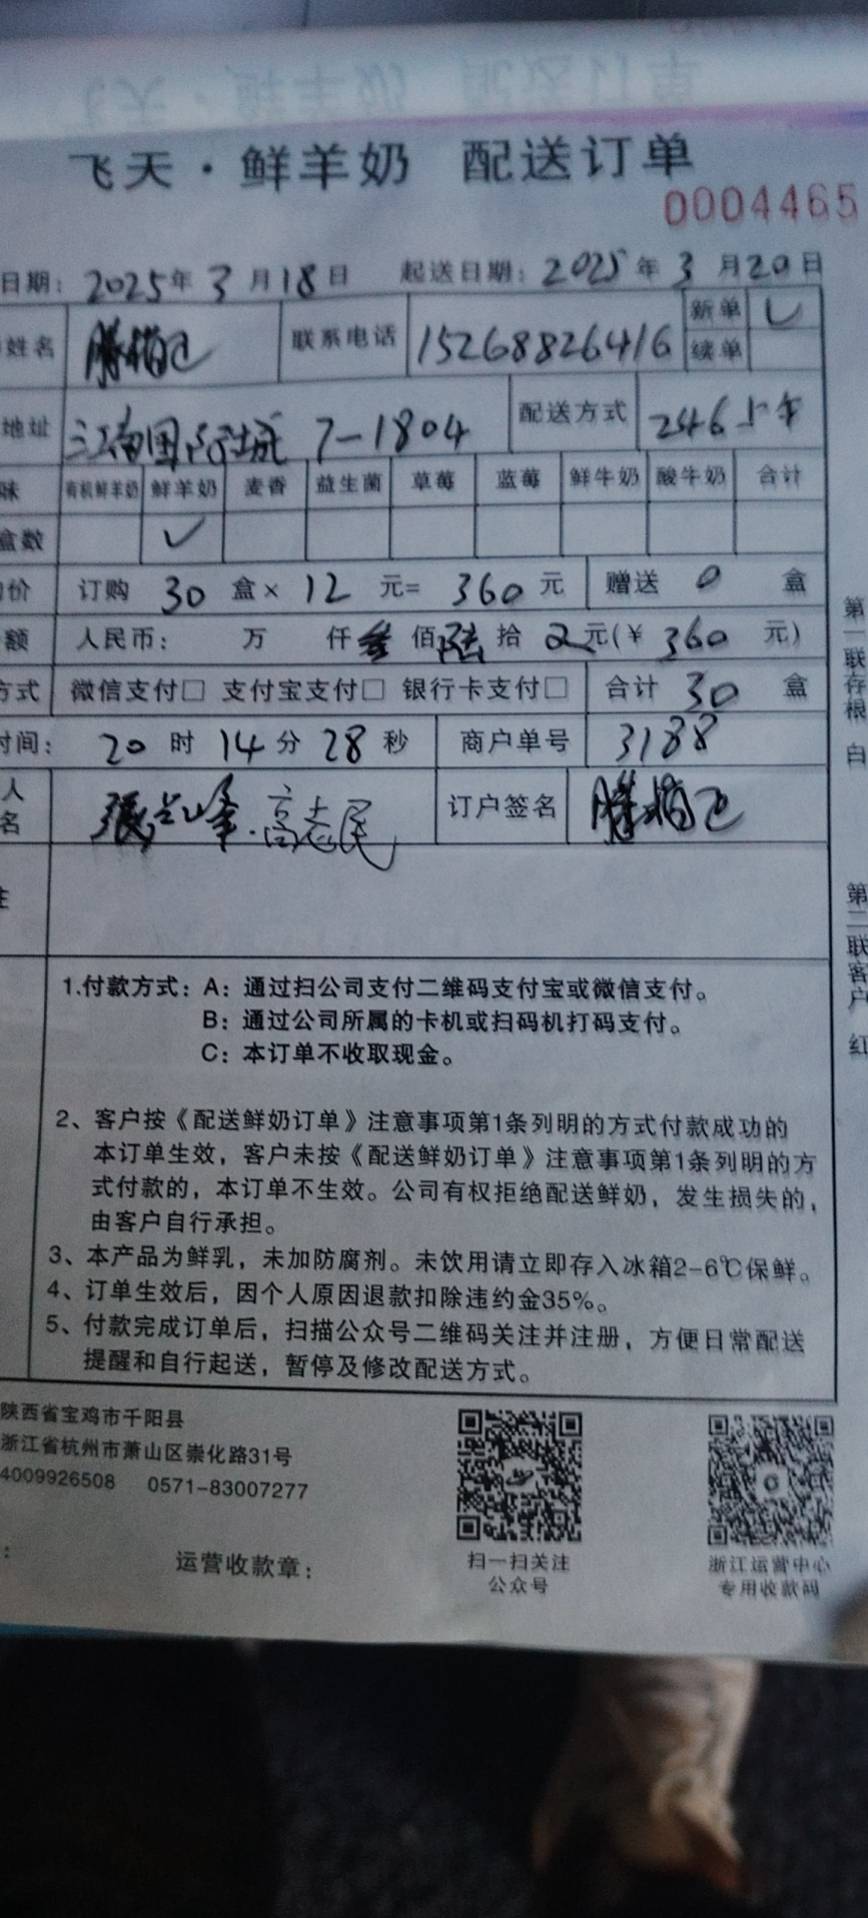 飞天·鲜羊奶 配送订单
0004465
日期: 2025年3月18日 起送日期: 2025年3月20日
姓名 联系电话 15268826416 新单 ✓
续单
地址 江南国际城 7-1804 配送方式 246上午
味 有机鲜羊奶 鲜羊奶 麦香 益生菌 草莓 蓝莓 鲜牛奶 酸牛奶 合计
盒数 ✓
价 订购 30 盒× 12 元= 360 元 赠送 0 盒
额 人民币: 万 仟 叁 佰 陆 拾 元(¥ 360 元)
方式 微信支付□ 支付宝支付□ 银行卡支付□ 合计 30 盒
时间: 20 时 14 分 28 秒 商户单号 3188
人
名 高志民 订户签名
注
1.付款方式: A: 通过扫公司支付二维码支付宝或微信支付。
B: 通过公司所属的卡机或扫码机打码支付。
C: 本订单不收取现金。
2、客户按《配送鲜奶订单》注意事项第1条列明的方式付款成功的
本订单生效，客户未按《配送鲜奶订单》注意事项第1条列明的方
式付款的，本订单不生效。公司有权拒绝配送鲜奶，发生损失的，
由客户自行承担。
3、本产品为鲜乳，未加防腐剂。未饮用请立即存入冰箱2-6℃保鲜。
4、订单生效后，因个人原因退款扣除违约金35%。
5、付款完成订单后，扫描公众号二维码关注并注册，方便日常配送
提醒和自行起送，暂停及修改配送方式。
陕西省宝鸡市千阳县
浙江省杭州市萧山区崇化路31号
4009926508 0571-83007277
运营收款章:
扫一扫关注
公众号
浙江运营中心
专用收款码
第一联存根 白
第二联客户 红